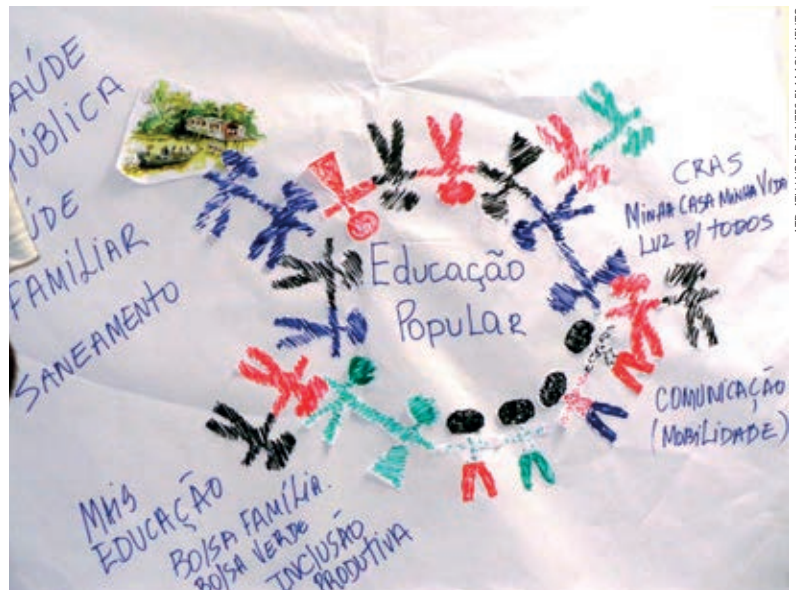 SAÚDE
PÚBLICA
SAÚDE
FAMÍLIAR
SANEAMENTO
Educação
Popular
CRAS
MINHA CASA MINHA VIDA
LUZ P/ TODOS
COMUNICAÇÃO
(MOBILIDADE)
MAIS
EDUCAÇÃO
BOLSA FAMÍLIA.
BOLSA VERDE
INCLUSÃO
PRODUTIVA